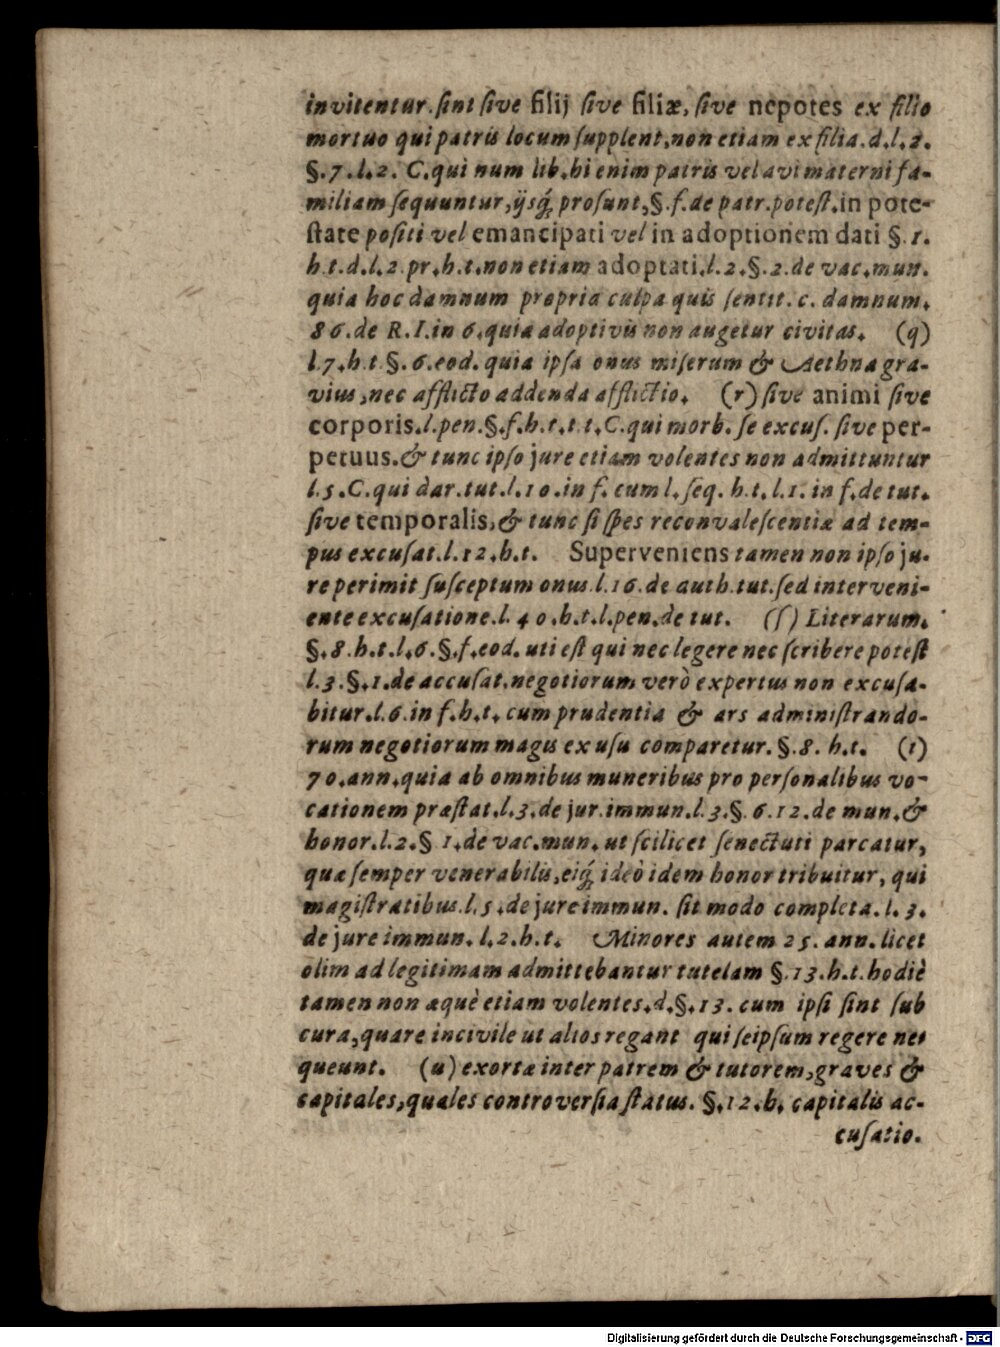 invitentur. ſint ſive filij ſive filiæ, ſive nepotes ex filio
mortuo qui patris locum ſupplent, non etiam ex filia. d. l. 2.
§. 7. l. 2. C. qui num lib. hi enim patris vel avi materni fa-
miliam ſequuntur, ijsq́; proſunt, §. f. de patr. poteſt. in pote-
ſtate poſiti vel emancipati vel in adoptionem dati §. 1.
h. t. d. l. 2. pr. h. t. non etiam adoptati. l. 2. §. 2. de vac. mun.
quia hoc damnum propria culpa quis ſentit. c. damnum.
86. de R. I. in 6. quia adoptivis non augetur civitas. (q)
l. 7. h. t. §. 6. eod. quia ipſa onus miſerum & Aethna gra-
vius, nec afflicto addenda afflictio. (r) ſive animi ſive
corporis. l. pen. §. f. h. t. t. t. C. qui morb. ſe excuſ. ſive per-
petuus. & tunc ipſo jure etiam volentes non admittuntur
l. 5. C. qui dar. tut. l. 10. in f. cum l. ſeq. h. t. l. 1. in f. de tut.
ſive temporalis, & tunc ſi ſpes reconvaleſcentiæ ad tem-
pus excuſat. l. 12. h. t. Superveniens tamen non ipſo ju-
re perimit ſuſceptum onus. l. 16. de auth. tut. ſed interveni-
ente excuſatione. l. 40. h. t. l. pen. de tut. (ſ) Literarum.
§. 8. h. t. l. 6. §. f. eod. uti eſt qui nec legere nec ſcribere poteſt
l. 3. §. 1. de accuſat. negotiorum verò expertus non excuſa-
bitur. l. 6. in f. h. t. cum prudentia & ars adminiſtrando-
rum negotiorum magis ex uſu comparetur. §. 8. h. t. (t)
70. ann. quia ab omnibus muneribus pro perſonalibus vo-
cationem præſtat. l. 3. de jur. immun. l. 3. §. 6. 12. de mun. &
honor. l. 2. § 1. de vac. mun. ut ſcilicet ſenectuti parcatur,
quæ ſemper venerabilis, eiq́; ideò idem honor tribuitur, qui
magiſtratibus. l. 5. de jure immun. ſit modo completa. l. 3.
de jure immun. l. 2. h. t. Minores autem 25. ann. licet
olim ad legitimam admittebantur tutelam §. 13. h. t. hodiè
tamen non æquè etiam volentes. d. §. 13. cum ipſi ſint ſub
cura, quare incivile ut alios regant qui ſeipſum regere ne-
queunt. (u) exortæ inter patrem & tutorem, graves &
capitales, quales controverſia ſtatus. §. 12. h. capitalis ac-
cuſatio.
Digitalisierung gefördert durch die Deutsche Forschungsgemeinschaft - DFG